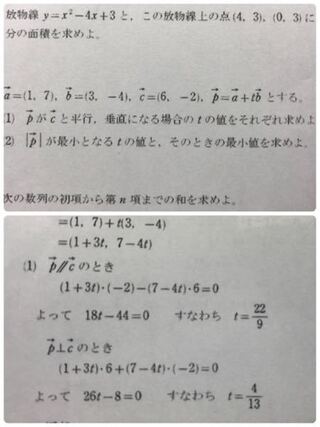 放物線 y=x²-4x+3 と，この放物線上の点 (4, 3)，(0, 3) に
分の面積を求めよ．
a⃗=(1, 7)，b⃗=(3, -4)，c⃗=(6, -2)，p⃗=a⃗+tb⃗ とする．
1) p⃗ が c⃗ と平行，垂直になる場合の t の値をそれぞれ求めよ
2) |p⃗| が最小となる t の値と，そのときの最小値を求めよ．
次の数列の初項から第 n 項までの和を求めよ．
=(1, 7)+t(3, -4)
=(1+3t, 7-4t)
(1) p⃗∥c⃗ のとき
(1+3t)·(-2)-(7-4t)·6=0
よって 18t-44=0 すなわち t=22/9
p⃗⊥c⃗ のとき
(1+3t)·6+(7-4t)·(-2)=0
よって 26t-8=0 すなわち t=4/13